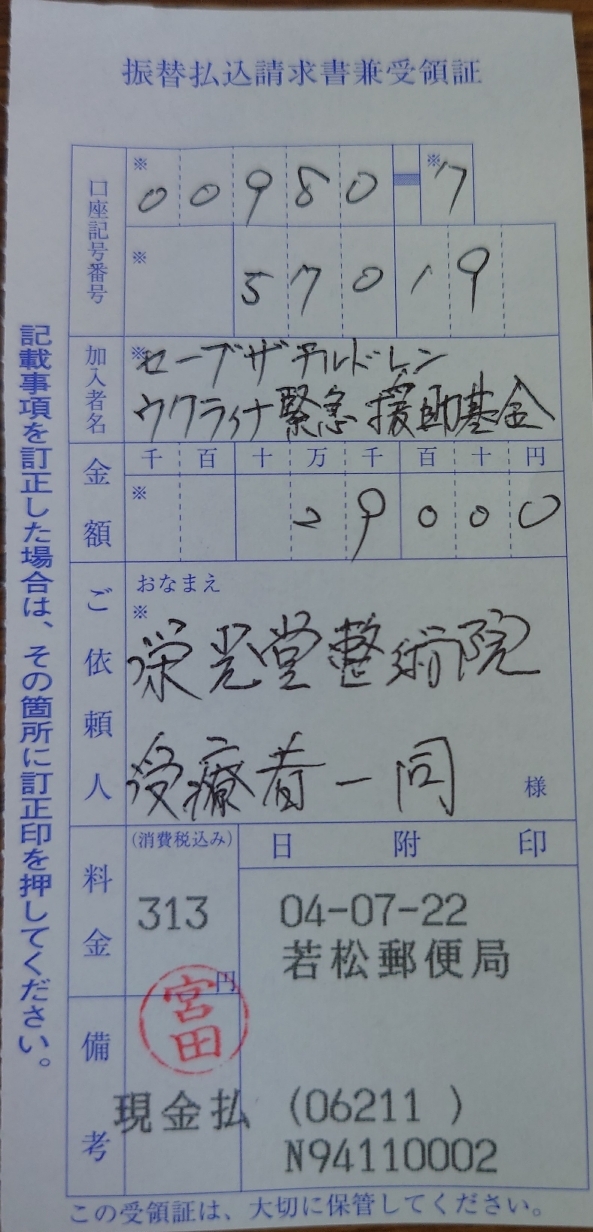 振替払込請求書兼受領証
口座記号番号
※ 00980-※7
※ 57019
加入者名
※セーブザチルドレン
ウクライナ緊急援助基金
金額
千百十万千百十円
※ 29000
ご依頼人
おなまえ
※
栄光堂整術院
受療者一同
様
料金
(消費税込み)
313
円
日附印
04-07-22
若松郵便局
宮田
備考
現金払 (06211 )
N94110002
この受領証は、大切に保管してください。
記載事項を訂正した場合は、その箇所に訂正印を押してください。